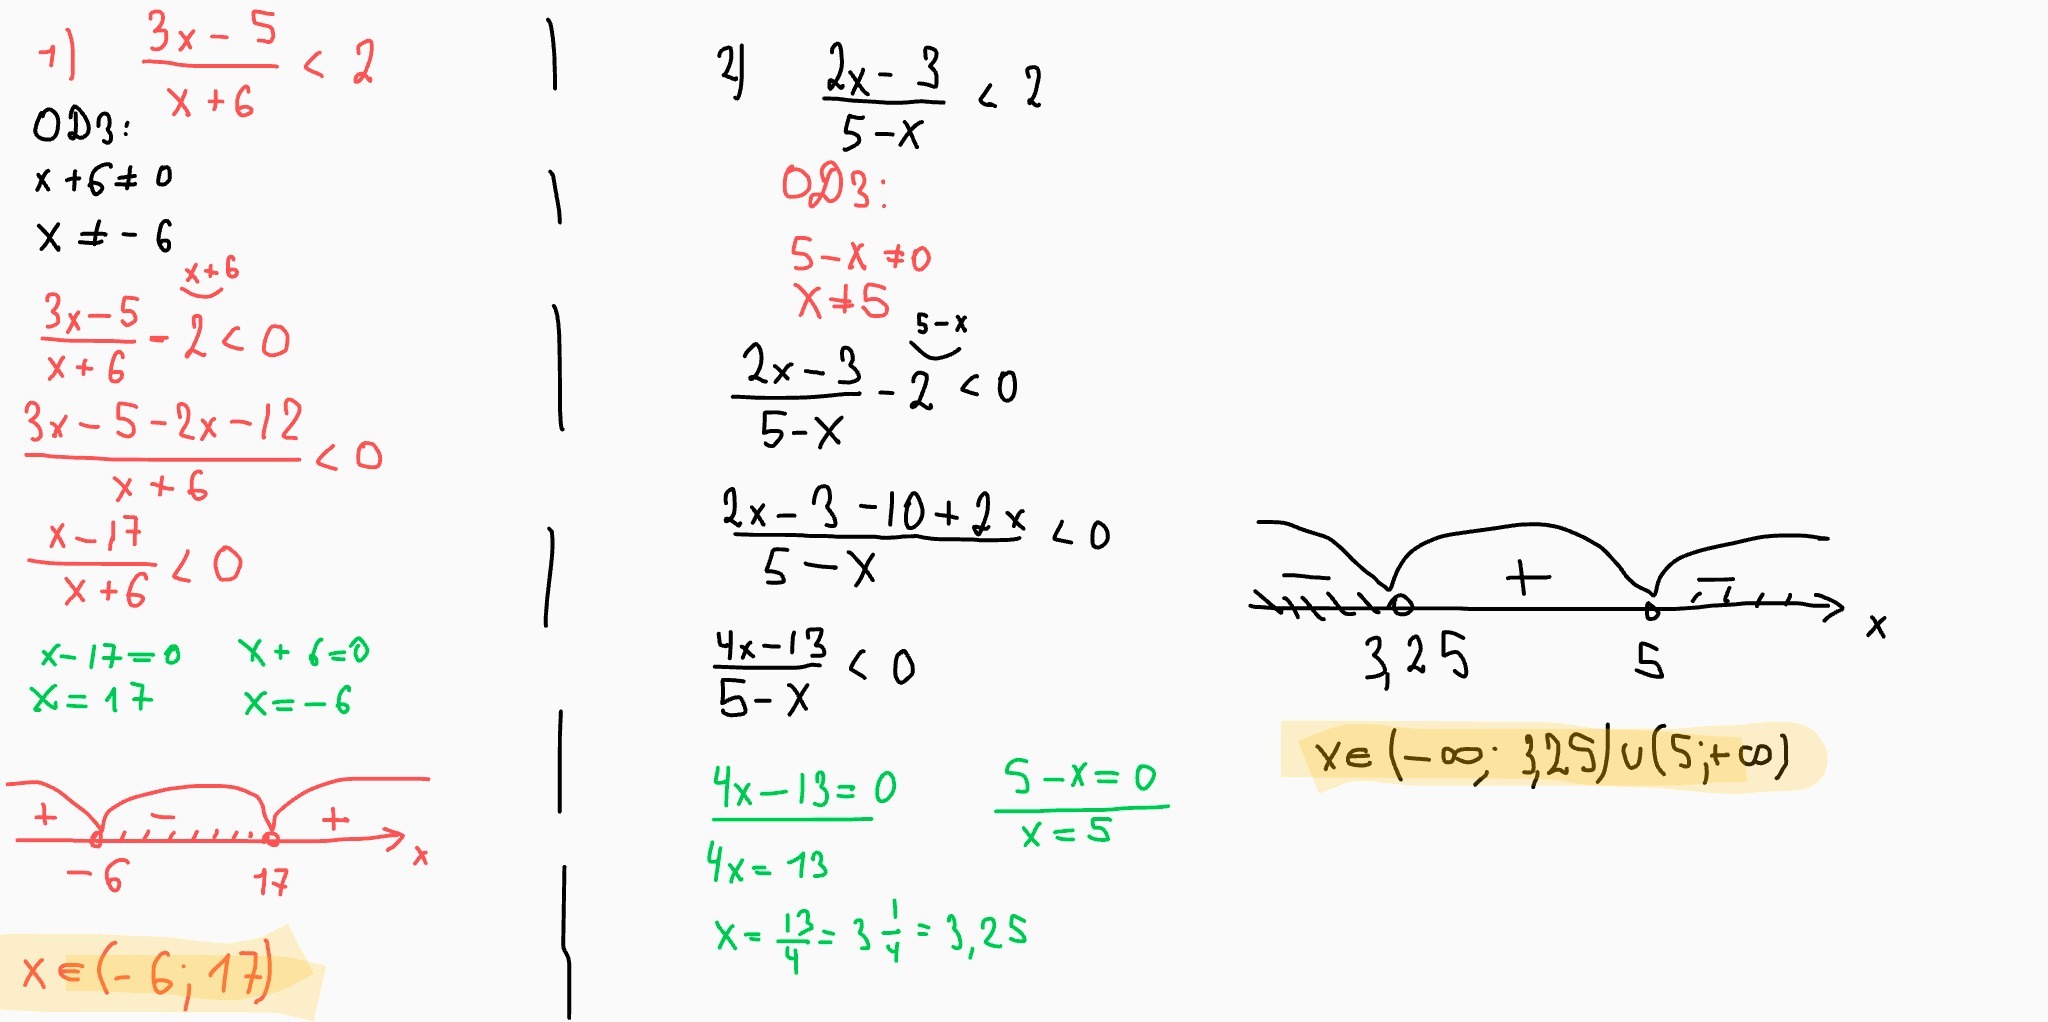 1) (3x - 5)/(x + 6) < 2
ОДЗ:
x + 6 ≠ 0
x ≠ - 6
x + 6
(3x - 5)/(x + 6) - 2 < 0
(3x - 5 - 2x - 12)/(x + 6) < 0
(x - 17)/(x + 6) < 0
x - 17 = 0 x + 6 = 0
x = 17 x = - 6
+ - +
- 6 17 x
x ∈ (- 6; 17)
2) (2x - 3)/(5 - x) < 2
ОДЗ:
5 - x ≠ 0
x ≠ 5
5 - x
(2x - 3)/(5 - x) - 2 < 0
(2x - 3 - 10 + 2x)/(5 - x) < 0
(4x - 13)/(5 - x) < 0
4x - 13 = 0 5 - x = 0
4x = 13 x = 5
x = 13/4 = 3 1/4 = 3,25
- + -
3,25 5 x
x ∈ (- ∞; 3,25) ∪ (5; + ∞)